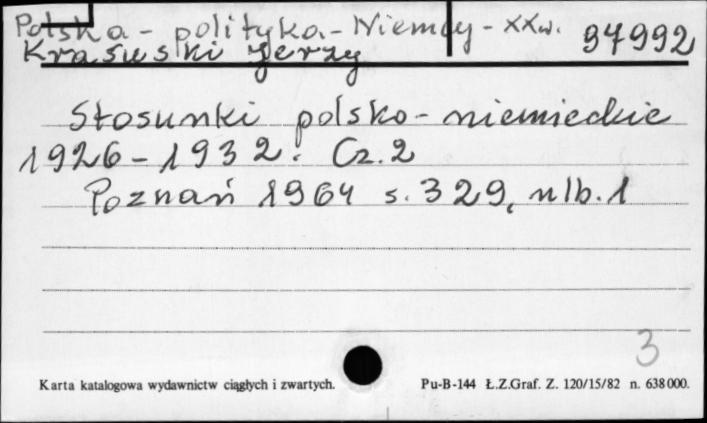 Polska - polityka - Niemcy - XXw. 94992
Krasuski Jerzy
Stosunki polsko-niemieckie
1926-1932. Cz.2
Poznań 1964 s. 329, nlb. 1
3
Karta katalogowa wydawnictw ciągłych i zwartych. Pu-B-144 Ł.Z.Graf. Z. 120/15/82 n. 638000.